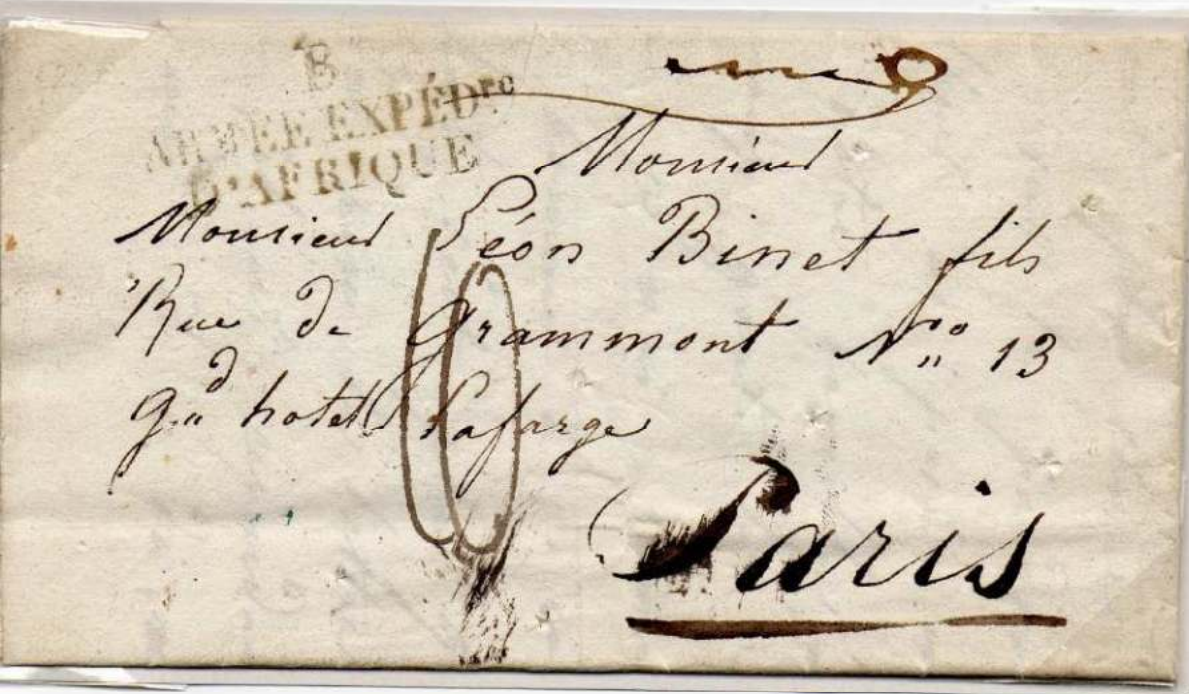 B
ARMÉE EXPÉD.re
D'AFRIQUE
Monsieur
Monsieur Léon Binet fils
Rue de Grammont No 13
gd hotel Lafarge
Paris